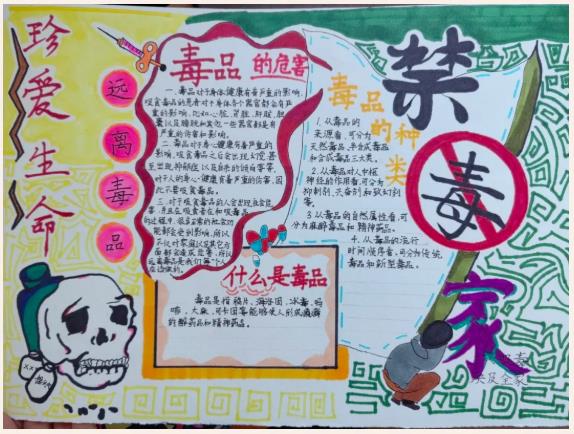 珍爱生命
远离毒品
毒品的危害
一.毒品对于身体健康有着严重的影响,
吸食毒品的患者对于身体各个器官都会有严
重的影响,比如心脏、肾脏、肝脏、胆
囊以及膀胱和其他一些器官都是有
严重的伤害和影响。
二.毒品对于身心健康有着严重的
影响,吸食毒品之后会出现幻觉,甚
至出现抑郁症以及自杀的倾向等等,
对于人的身心健康有着严重的伤害,因
此不要吸食毒品。
三.对于吸食毒品的人会出现
什么是毒品
毒品是指鸦片、海洛因、冰毒、吗
啡、大麻、可卡因等能够使人形成瘾癖
的麻醉药品和精神药品。
毒品的种类
1.从毒品的
来源看,可分为
天然毒品、半合成毒品
和合成毒品三大类。
2.从毒品对人中枢
神经的作用看,可分为
抑制剂、兴奋剂和致幻剂
等。
3.从毒品的自然属性看,可
分为麻醉毒品和精神药品。
4.从毒品的流行
时间顺序看,可分为传统
毒品和新型毒品。
禁
毒
家
殃及全家